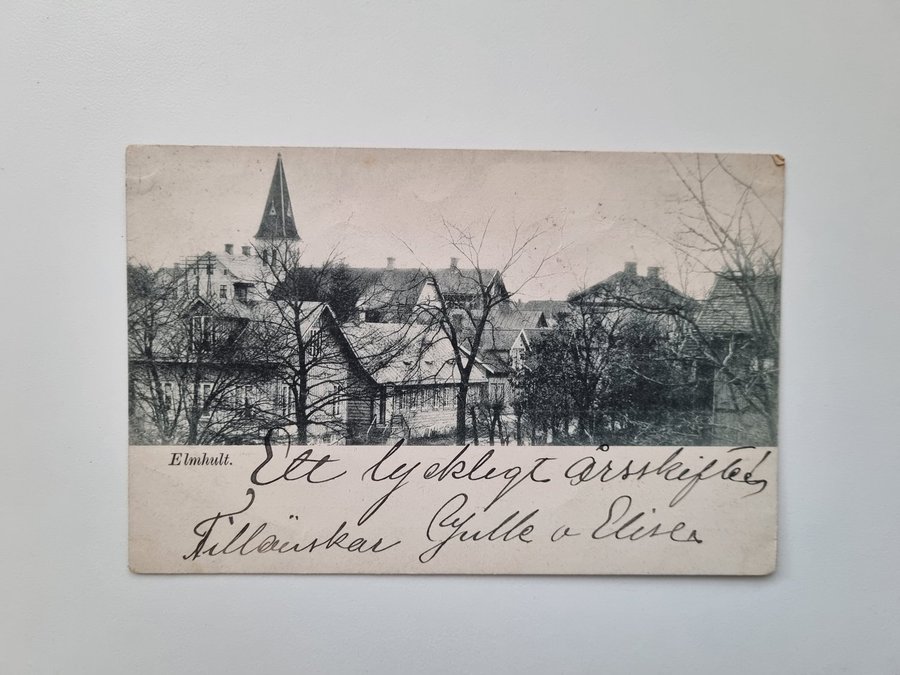 Elmhult.
Ett lyckligt årsskifte!
Tillönskar Gulle o Elise.